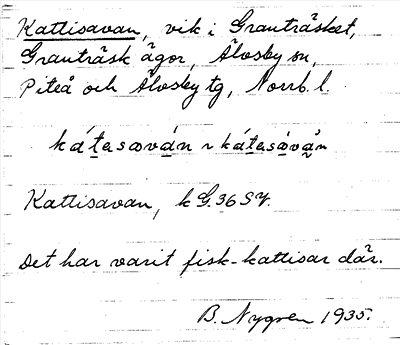 Kattisavan, vik i Granträsket,
Granträsk ägor, Älvsby sn,
Piteå och Älvsby tg, Norrb. l.
kátesaván ~ kátesåvån
Kattisavan, k G. 36 SY.
Det har varit fisk-kattisar där.
B. Nygren 1935.